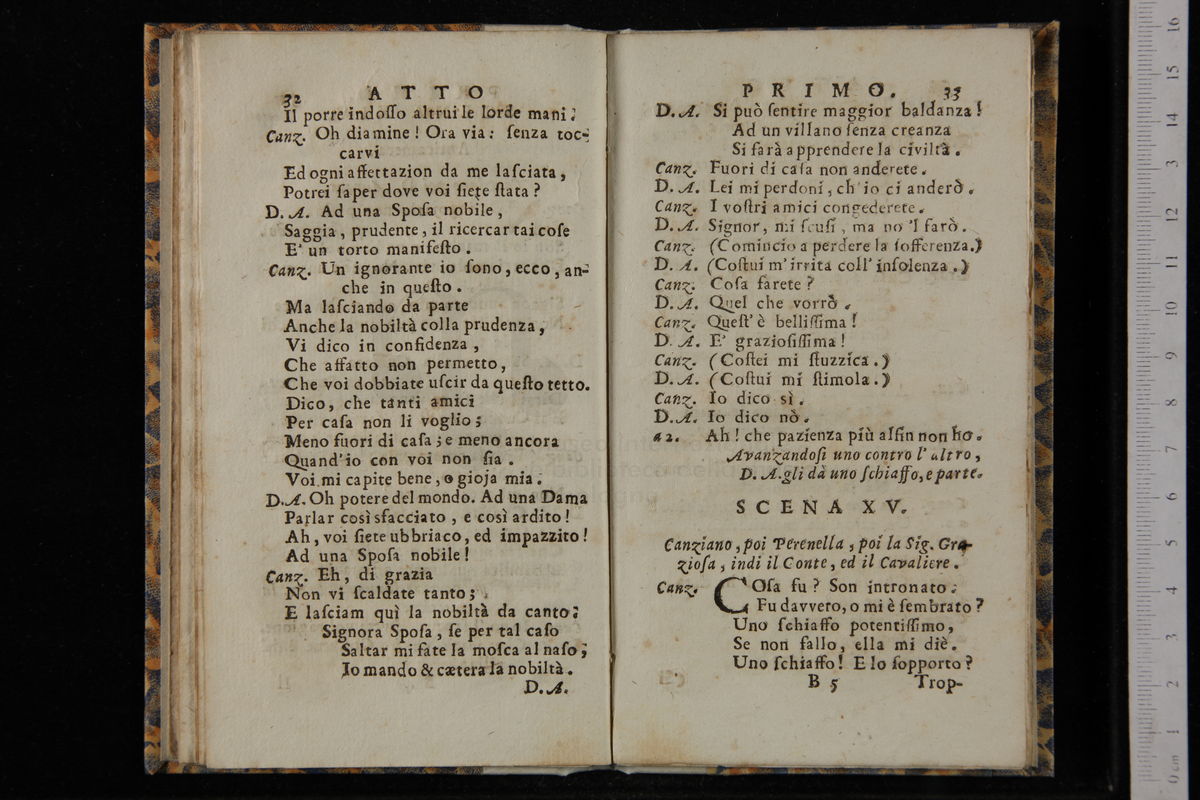 32 ATTO
Il porre indosso altrui le lorde mani:
Canz. Oh diamine! Ora via: senza toc-
carvi
Ed ogni affettazion da me lasciata,
Potrei saper dove voi siete stata?
D. A. Ad una Sposa nobile,
Saggia, prudente, il ricercar tai cose
E' un torto manifesto.
Canz. Un ignorante io sono, ecco, an-
che in questo.
Ma lasciando da parte
Anche la nobiltà colla prudenza,
Vi dico in confidenza,
Che affatto non permetto,
Che voi dobbiate uscir da questo tetto.
Dico, che tanti amici
Per casa non li voglio;
Meno fuori di casa; e meno ancora
Quand'io con voi non sia.
Voi mi capite bene, o gioja mia.
D. A. Oh potere del mondo. Ad una Dama
Parlar così sfacciato, e così ardito!
Ah, voi siete ubbriaco, ed impazzito!
Ad una Sposa nobile!
Canz. Eh, di grazia
Non vi scaldate tanto;
E lasciam quì la nobiltà da canto:
Signora Sposa, se per tal caso
Saltar mi fate la mosca al naso,
Io mando & cætera la nobiltà.
D. A.
PRIMO. 33
D. A. Si può sentire maggior baldanza!
Ad un villano senza creanza
Si farà apprendere la civiltà.
Canz. Fuori di casa non anderete.
D. A. Lei mi perdoni, ch'io ci anderò.
Canz. I vostri amici congederete.
D. A. Signor, mi scusi, ma no 'l farò.
Canz. (Comincio a perdere la sofferenza.)
D. A. (Costui m'irrita coll' insolenza.)
Canz. Cosa farete?
D. A. Quel che vorrò.
Canz. Quest' è bellissima!
D. A. E' graziosissima!
Canz. (Costei mi stuzzica.)
D. A. (Costui mi stimola.)
Canz. Io dico sì.
D. A. Io dico nò.
a 2. Ah! che pazienza più alfin non ho.
Avanzandosi uno contro l' altro,
D. A. gli dà uno schiaffo, e parte.
SCENA XV.
Canziano, poi Perenella, poi la Sig. Gra-
ziosa, indi il Conte, ed il Cavaliere.
Canz. COsa fu? Son intronato:
Fu davvero, o mi è sembrato?
Uno schiaffo potentissimo,
Se non fallo, ella mi diè.
Uno schiaffo! E lo sopporto?
B 5 Trop-